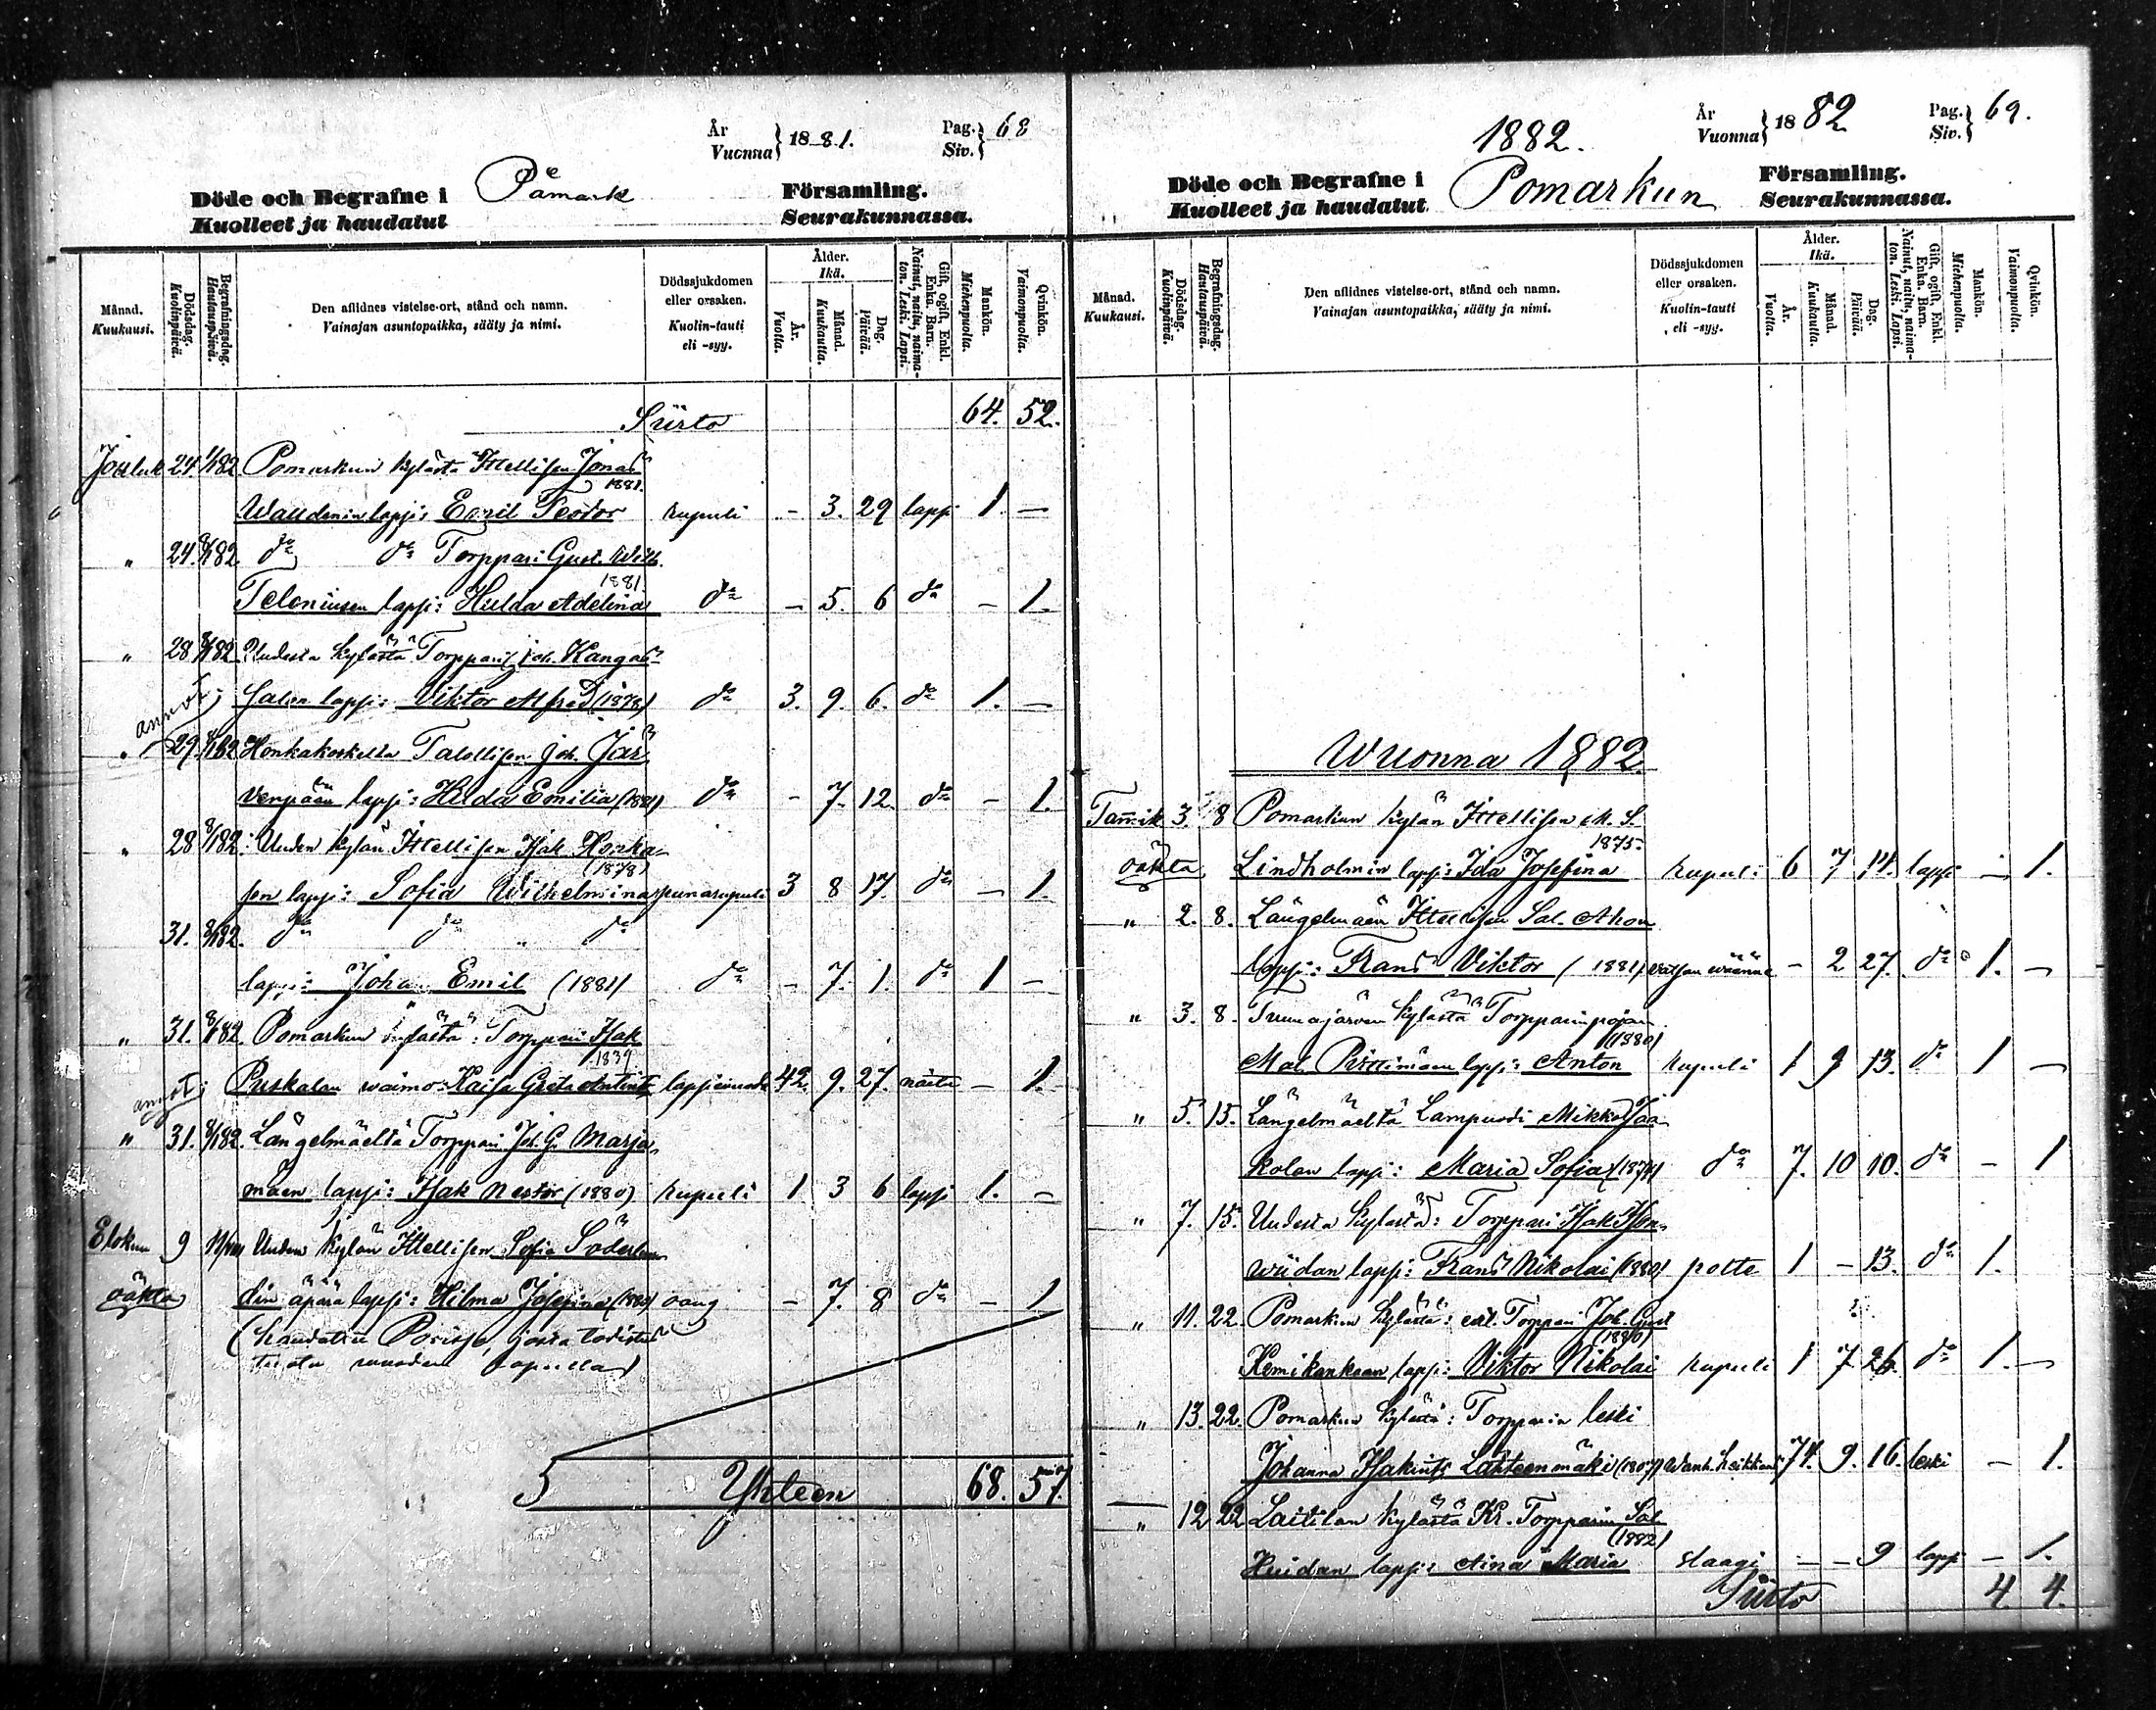 År
Vuonna } 18 81.
Pag.
Siv. } 68
Döde och Begrafne i Påmark Församling.
Kuolleet ja haudatut Seurakunnassa.
Månad. Kuukausi.
Dödsdag. Kuolinpäivä.
Begrafningsdag. Hautauspäivä.
Den aflidnes vistelse-ort, stånd och namn.
Vainajan asuntopaikka, sääty ja nimi.
Dödssjukdomen eller orsaken.
Kuolin-tauti eli -syy.
Ålder. Ikä.
År. Vuotta.
Månad. Kuukautta.
Dag. Päivää.
Gift, ogift, Enkl. Enka. Barn.
Nainut, naitu, naimaton. Leski. Lapsi.
Mankön. Miehenpuolta.
Qvinkön. Vaimonpuolta.
Siirto 64. 52.
Jouluk 24. 1/1 82 Pomarkun kylästä Ittellisen Jonas
1881.
lapsi: Emil Teodor rupuli - 3. 29 lapsi 1. —
" 24. 8/1 82 do do Torppari Gust. Wilh.
1881
lapsi: Hulda Adelina do - 5. 6 do - 1.
" 28 8/1 82 Uudesta kylästä Torpparin Joh. Kangas
Salon lapsi: Viktor Alfred (1878) do 3. 9. 6. do 1. —
" 29. 8/1 82 Honkakoskelta Talollisen Joh. Jär
venpään lapsi: Hilda Emilia (1881) do - 7. 12. do - 1.
" 28 8/1 82. Uuden kylän Ittellisen Isak Honka
(1878)
sen lapsi: Sofia Wilhelmina punarupuli 3 8 17. do — 1.
31. 8/1 82. do do " do
lapsi: Johan Emil (1881) do - 7. 1. do 1 —
" 31. 8/1 82. Pomarkun kylästä: Torppari Isak
1839
Puskalan waimo: Kaisa Greta 42. 9. 27. — 1.
" 31. 8/1 82. Längelmäeltä Torppari Joh. G. Marja
mäen lapsi: Isak Nestor (1880) rupuli 1 3 6 lapsi 1. —
Elokuu 9 Uuden kylän Ittellisen Sofia Söderlun
din äpärä lapsi: Hilma Josefina - 7. 8 do — 1
(haudattu Porissa, josta todistus
5 Yhteen 68. 57.
1882.
År
Vuonna } 18 82
Pag.
Siv. } 69.
Döde och Begrafne i Pomarkun Församling.
Kuolleet ja haudatut Seurakunnassa.
Månad. Kuukausi.
Dödsdag. Kuolinpäivä.
Begrafningsdag. Hautauspäivä.
Den aflidnes vistelse-ort, stånd och namn.
Vainajan asuntopaikka, sääty ja nimi.
Dödssjukdomen eller orsaken.
Kuolin-tauti eli -syy.
Ålder. Ikä.
År. Vuotta.
Månad. Kuukautta.
Dag. Päivää.
Gift, ogift, Enkl. Enka. Barn.
Nainut, naitu, naimaton. Leski. Lapsi.
Mankön. Miehenpuolta.
Qvinkön. Vaimonpuolta.
Wuonna 1882.
Tammik 3. 8 Pomarkun kylän Ittellisen M. S.
1875.
Lindholmin lapsi: Ida Josefina rupuli 6 7 14. lapsi — 1.
" 2. 8. Längelmäen Ittellisen Sal. Ahon
lapsi: Frans Viktor (1881) vatsan väänne - 2 27. do 1. —
" 3. 8. Tuunajärven kylästä Torpparinpojan
(1880)
Mat. lapsi: Anton rupuli 1 9 13. do 1 —
" 5. 15. Längelmäeltä Lampuodi Mikko Jaa
kolan lapsi: Maria Sofia (1874) do 7. 10 10. do - 1
" 7. 15. Uudesta kylästä: Torppari Isak Hon
wiidan lapsi: Frans Nikolai (1880) 1 - 13. do 1.
" 11. 22. Pomarkun kylästä: ent. Torppari Joh. Gust
(1880)
Kemikankaan lapsi: Viktor Nikolai rupuli 1 7 26. do 1. —
" 13. 22. Pomarkun kylästä: Torpparin leski
Johanna Isakint. Lähteenmäki (1807) Wanh. heikkous 74. 9. 16. leski — 1.
" 12 22 Laitilan kylästä Kr. Torpparin Sal.
(1882)
Huidan lapsi: Aina Maria slaagi — — 9 lapsi — 1.
Siirto 4. 4.